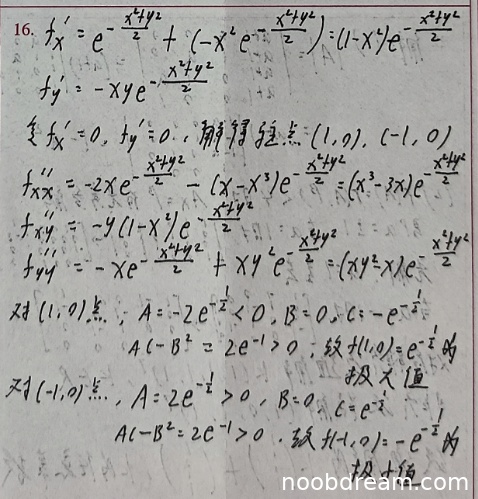 16. f'x = e^{-\frac{x²+y²}{2}} + (-x² e^{-\frac{x²+y²}{2}}) = (1-x²)e^{-\frac{x²+y²}{2}}
fy' = -xye^{-\frac{x²+y²}{2}}
令fx'=0, fy'=0, 解得驻点(1,0), (-1,0)
f''xx = -2xe^{-\frac{x²+y²}{2}} - (x-x³)e^{-\frac{x²+y²}{2}} = (x³-3x)e^{-\frac{x²+y²}{2}}
f''xy = -y(1-x²)e^{-\frac{x²+y²}{2}}
f''yy = -xe^{-\frac{x²+y²}{2}} + xy²e^{-\frac{x²+y²}{2}} = (xy²-x)e^{-\frac{x²+y²}{2}}
对(1,0)点, A=-2e^{-\frac{1}{2}}<0, B=0, C=-e^{-\frac{1}{2}}
AC-B²=2e^{-1}>0, 故f(1,0)=e^{-\frac{1}{2}}为
极大值
对(-1,0)点, A=2e^{-\frac{1}{2}}>0, B=0 C=e^{-\frac{1}{2}}
AC-B²=2e^{-1}>0, 故f(-1,0)=-e^{-\frac{1}{2}}为
极小值
noobdream.com